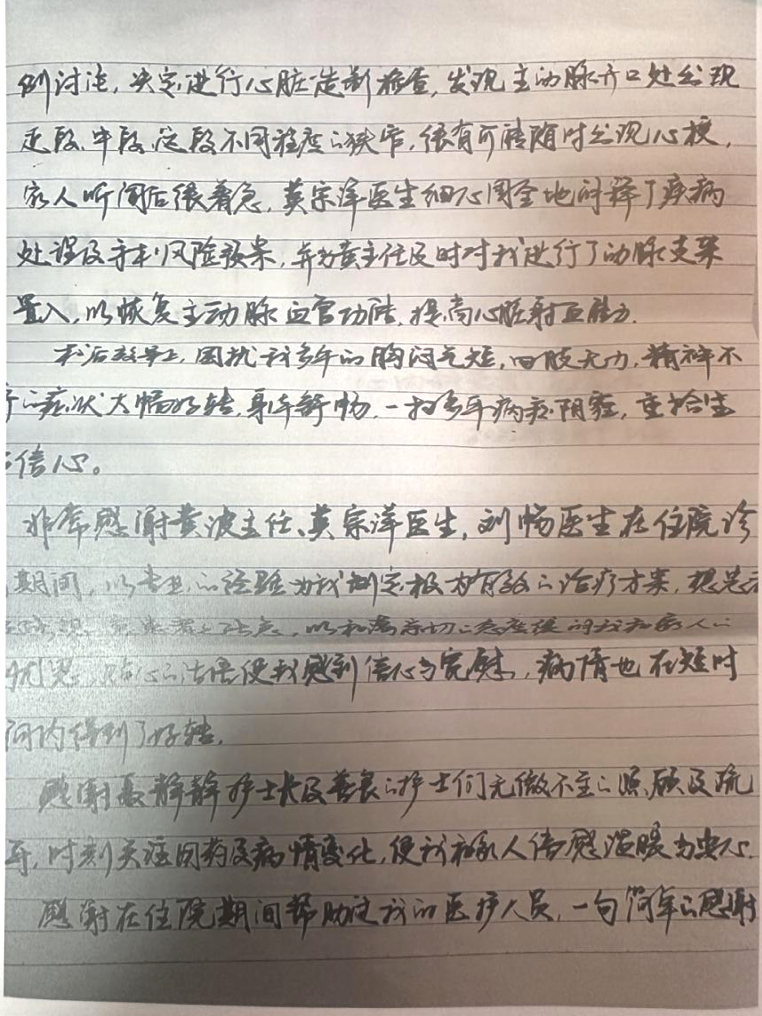 例讨论，决定进行心脏造影检查，发现主动脉开口处出现
近段、中段、远段不同程度的狭窄，很有可能随时出现心梗，
家人听闻后很着急，莫宗洋医生细心周全地解释了疾病
处理及手术风险预案，并为黄主任及时对我进行了动脉支架
置入，以恢复主动脉血管功能，提高心脏射血能力.
术后效果上，困扰我多年的胸闷气短，四肢无力，精神不
的症状大幅好转，身体舒畅，一扫多年病症阴霾，重拾生
信心。
非常感谢黄波主任、莫宗洋医生，刘畅医生在住院诊
期间，以专业的经验为我制定极为有效的治疗方案，想患
以和蔼亲切的态度使得我和家人的
的话语使我感到信心与宽慰，病情也在短时
间内得到了好转.
感谢聂静静护士长及善良的护士们无微不至的照顾及疏
导，时刻关注用药及病情变化，使我和家人倍感温暖与安心.
感谢在住院期间帮助过我的医护人员，一句简单的感谢